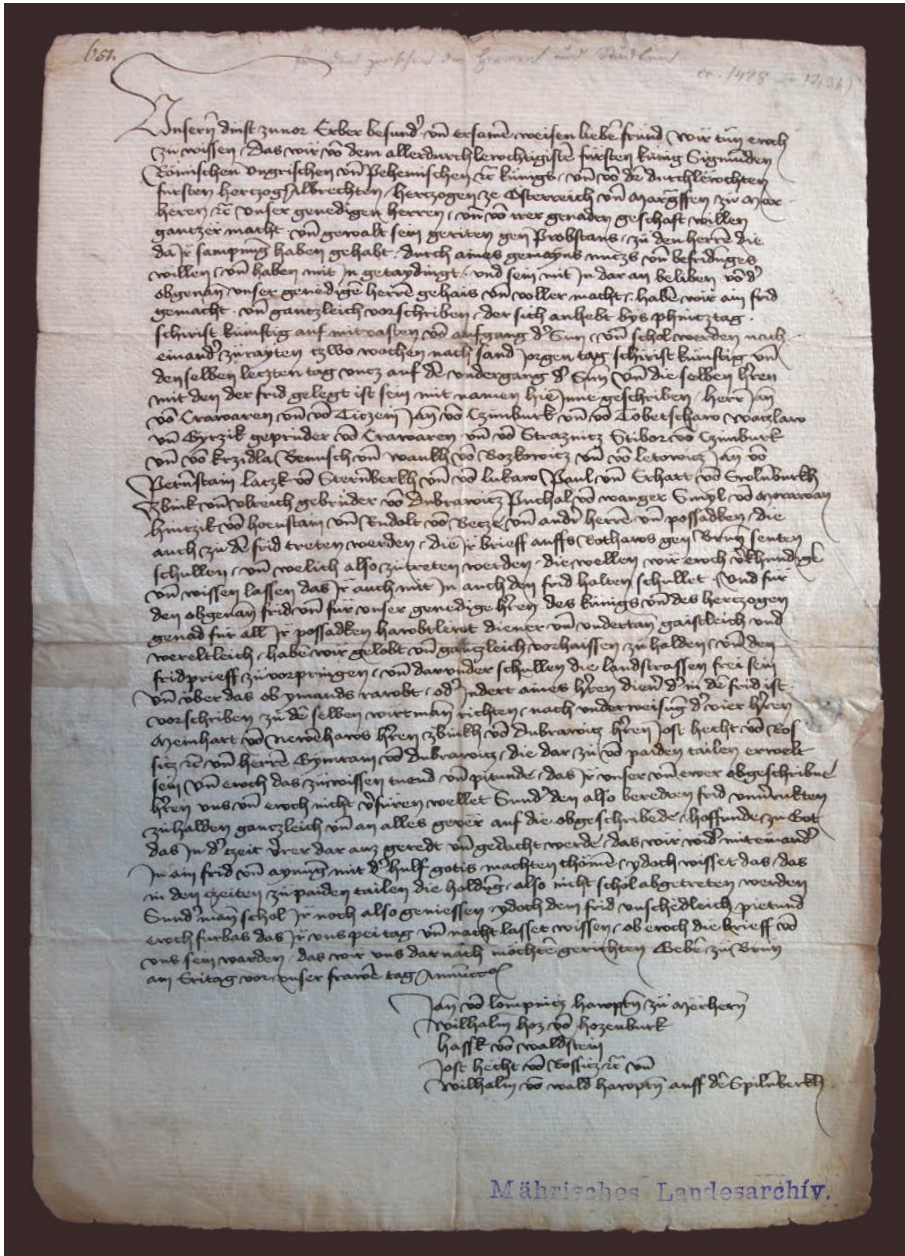 651.
für den zwischen den Herren und
ca. 1428
Unsern dinst zuuor Erber besund' vn̄ ersamē weisen liebē frūnd wir tūn ewch
zu wissen Das wir vō dem allerdurchlewchtigistē fūrsten kūnig Sigmūnden
Rōmischen ungrischen vn̄ Pehemischen ꝛc kūnigs vn̄ vō dē durchlēwchten
fūrsten hertzog Albrechten hertzogen ze Osterreich vn̄ Margffen zu Mer
heren ꝛc unser genedigen herren vn̄ vō irer genaden geschaft willen
gantzer macht vn̄ gewalt sein geriten gen Probstans zu den herrē die
da Ir sampnūg haben gehabt durch aines gemayns nuczs vn̄ befridunges
willen vn̄ haben mit In getaydingt und sein mit In dar an beliben vō d'
obgenan unser genedigē herrē gehais vn̄ voller macht habē wir ain frid
gemacht vn̄ gantzleich vorschriben der sich anhebt bys phincztag
schirist kūnftig auf mitvasten vō aufgang d' Sun vn̄ schol werden nach
einand' zurayten czwo wochen nach sand Jorgen tag schirist kūnftig vn̄
den selben leczten tag uncz auf dē undergang d' Sun vn̄ die selben h'ren
mit den der frid gelegt ist sein mit namen hie Inne geschriben herr Jan
vō Crawaren vn̄ vō Ticzein Jan vō Czimburk vn̄ vō Tobetschaw watzlaw
vn̄ Gyrzik geprūder vō Crawaren vn̄ vō Straznicz Stibor vō Czimburk
vn̄ vō krzidla Benusch vn̄ wankh vō Bozkowicz vn̄ vō letowicz Jan vō
Pernstain laczk vō Sternberkh vn̄ vō lukaw Paul vn̄ Erhart vō
Zbink vn̄ Ulreich gebrūder vō Dubrawicz Puchal vn̄ wanger Smyl vō Morawan
hinczik vō hornstain vn̄ Rudolt vō Becze vn̄ and' herrē vn̄ possadken die
auch zu dē frid treten werden die Ir brieff auffs Rothaws gen Brūn senten
schullen vn̄ welich also zutreten werden die wellen wir ewch v'khundigē
vn̄ wissen lassen das Ir auch mit In auch den frid halten schullet Und fur
den obgenan frid vn̄ fūr unser genedige h'ren des kūnigs vn̄ des herczogen
genad fur all Ir possadken hawbtlewt diener vn̄ undertan gaistleich und
wereltleich habē wir gelobt vn̄ ganczleich vorhaissen zu halden vn̄ den
fridprieff zu vorpringen vn̄ darunder schullen die landstrassen frei sein
vn̄ ūber das ob ymands rawbt od' Indert aines h'ren dien' d' in dē frid ist
vorschriben zu dē selben wirt man richten nach underweisūg d' vier h'ren
Meinhart vō Newēhaws h'ren zbinkh vō Dubrawicz h'ren Jost hecht vō Ros
sicz ꝛc vn̄ herrē Gymram vō Dubrawicz die dar zu vō paiden tailen erwelt
sein vn̄ ewch das zuwissen tuend vn̄ pitunde das Ir unser vn̄ ewer obgeschribnē
h'ren uns vn̄ ewch nicht v'fūren wellet Sund' den also beredten frid unu'rukten
zuhalden ganczleich vn̄ an alles gever auf die obgeschribēde hoffunde zu Got
das In d' czeit v'rer dar auz geredt vn̄ gedacht werde das wir wid' miteinand'
In ain frid vn̄ aynūg mit d' hulf gotis machten chōmē ydoch wisset das das
in den czeiten zu paiden tailen die holdūg also nicht schol abgetreten werden
Sund' man schol Ir noch also geniessen ydoch dem frid unschedleich pietund
ewch furbas das Ir uns pei tag vn̄ nacht lasset wissen ob ewch die brieff vō
uns sein warden das wir uns dar nach mōchtē gerichten Gebē zu Brūn
am Eritag vor unser frawē tag Annūcc
Jan vō lompnicz hawptn̄ zu Merhern
Wilhalm koz vō kozenburk
hassk vō waldstein
Jost hecht vō Rossicz ꝛc vn̄
Wilhalm vō wald hawptn̄ auff dē Spilnberkh
Mährisches Landesarchiv.